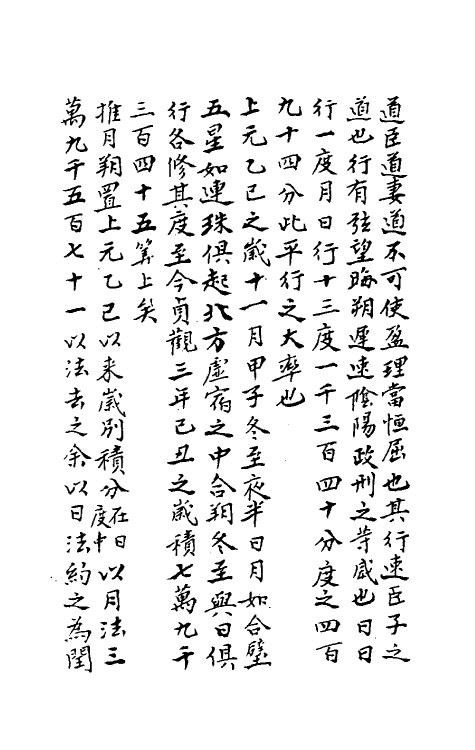 道臣道妻道不可使盈理當恒屈也其行速臣子之
道也行有弦望晦朔遲速陰陽政刑之等威也日日
行一度月日行十三度一千三百四十分度之四百
九十四分此平行之大率也
上元乙巳之歲十一月甲子冬至夜半日月如合璧
五星如連珠俱起北方虛宿之中合朔冬至與日俱
行各修其度至今貞觀三年己丑之歲積七萬九千
三百四十五筭上矣
推月朔置上元乙巳以来歲別積分在日度中以月法三
萬九千五百七十一以法去之余以日法約之為閏